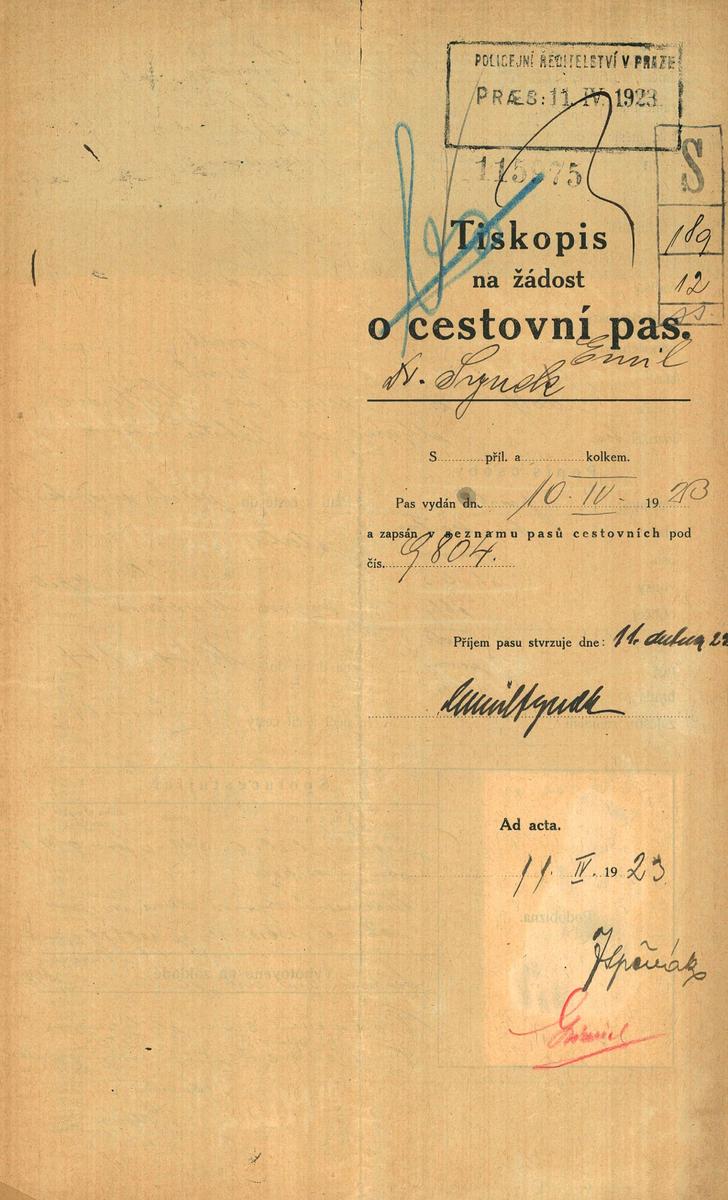 POLICEJNÍ ŘEDITELSTVÍ V PRAZE
PRÆS: 11. IV. 1923
S
189
12
Tiskopis
na žádost
o cestovní pas.
Dr. Synek Emil
S........příl. a............kolkem.
Pas vydán dne 10. IV. 1923
a zapsán v seznamu pasů cestovních pod
čís. 9804.
Příjem pasu stvrzuje dne: 11. dubna 23
Ad acta.
11. IV. 1923
Podobizna.